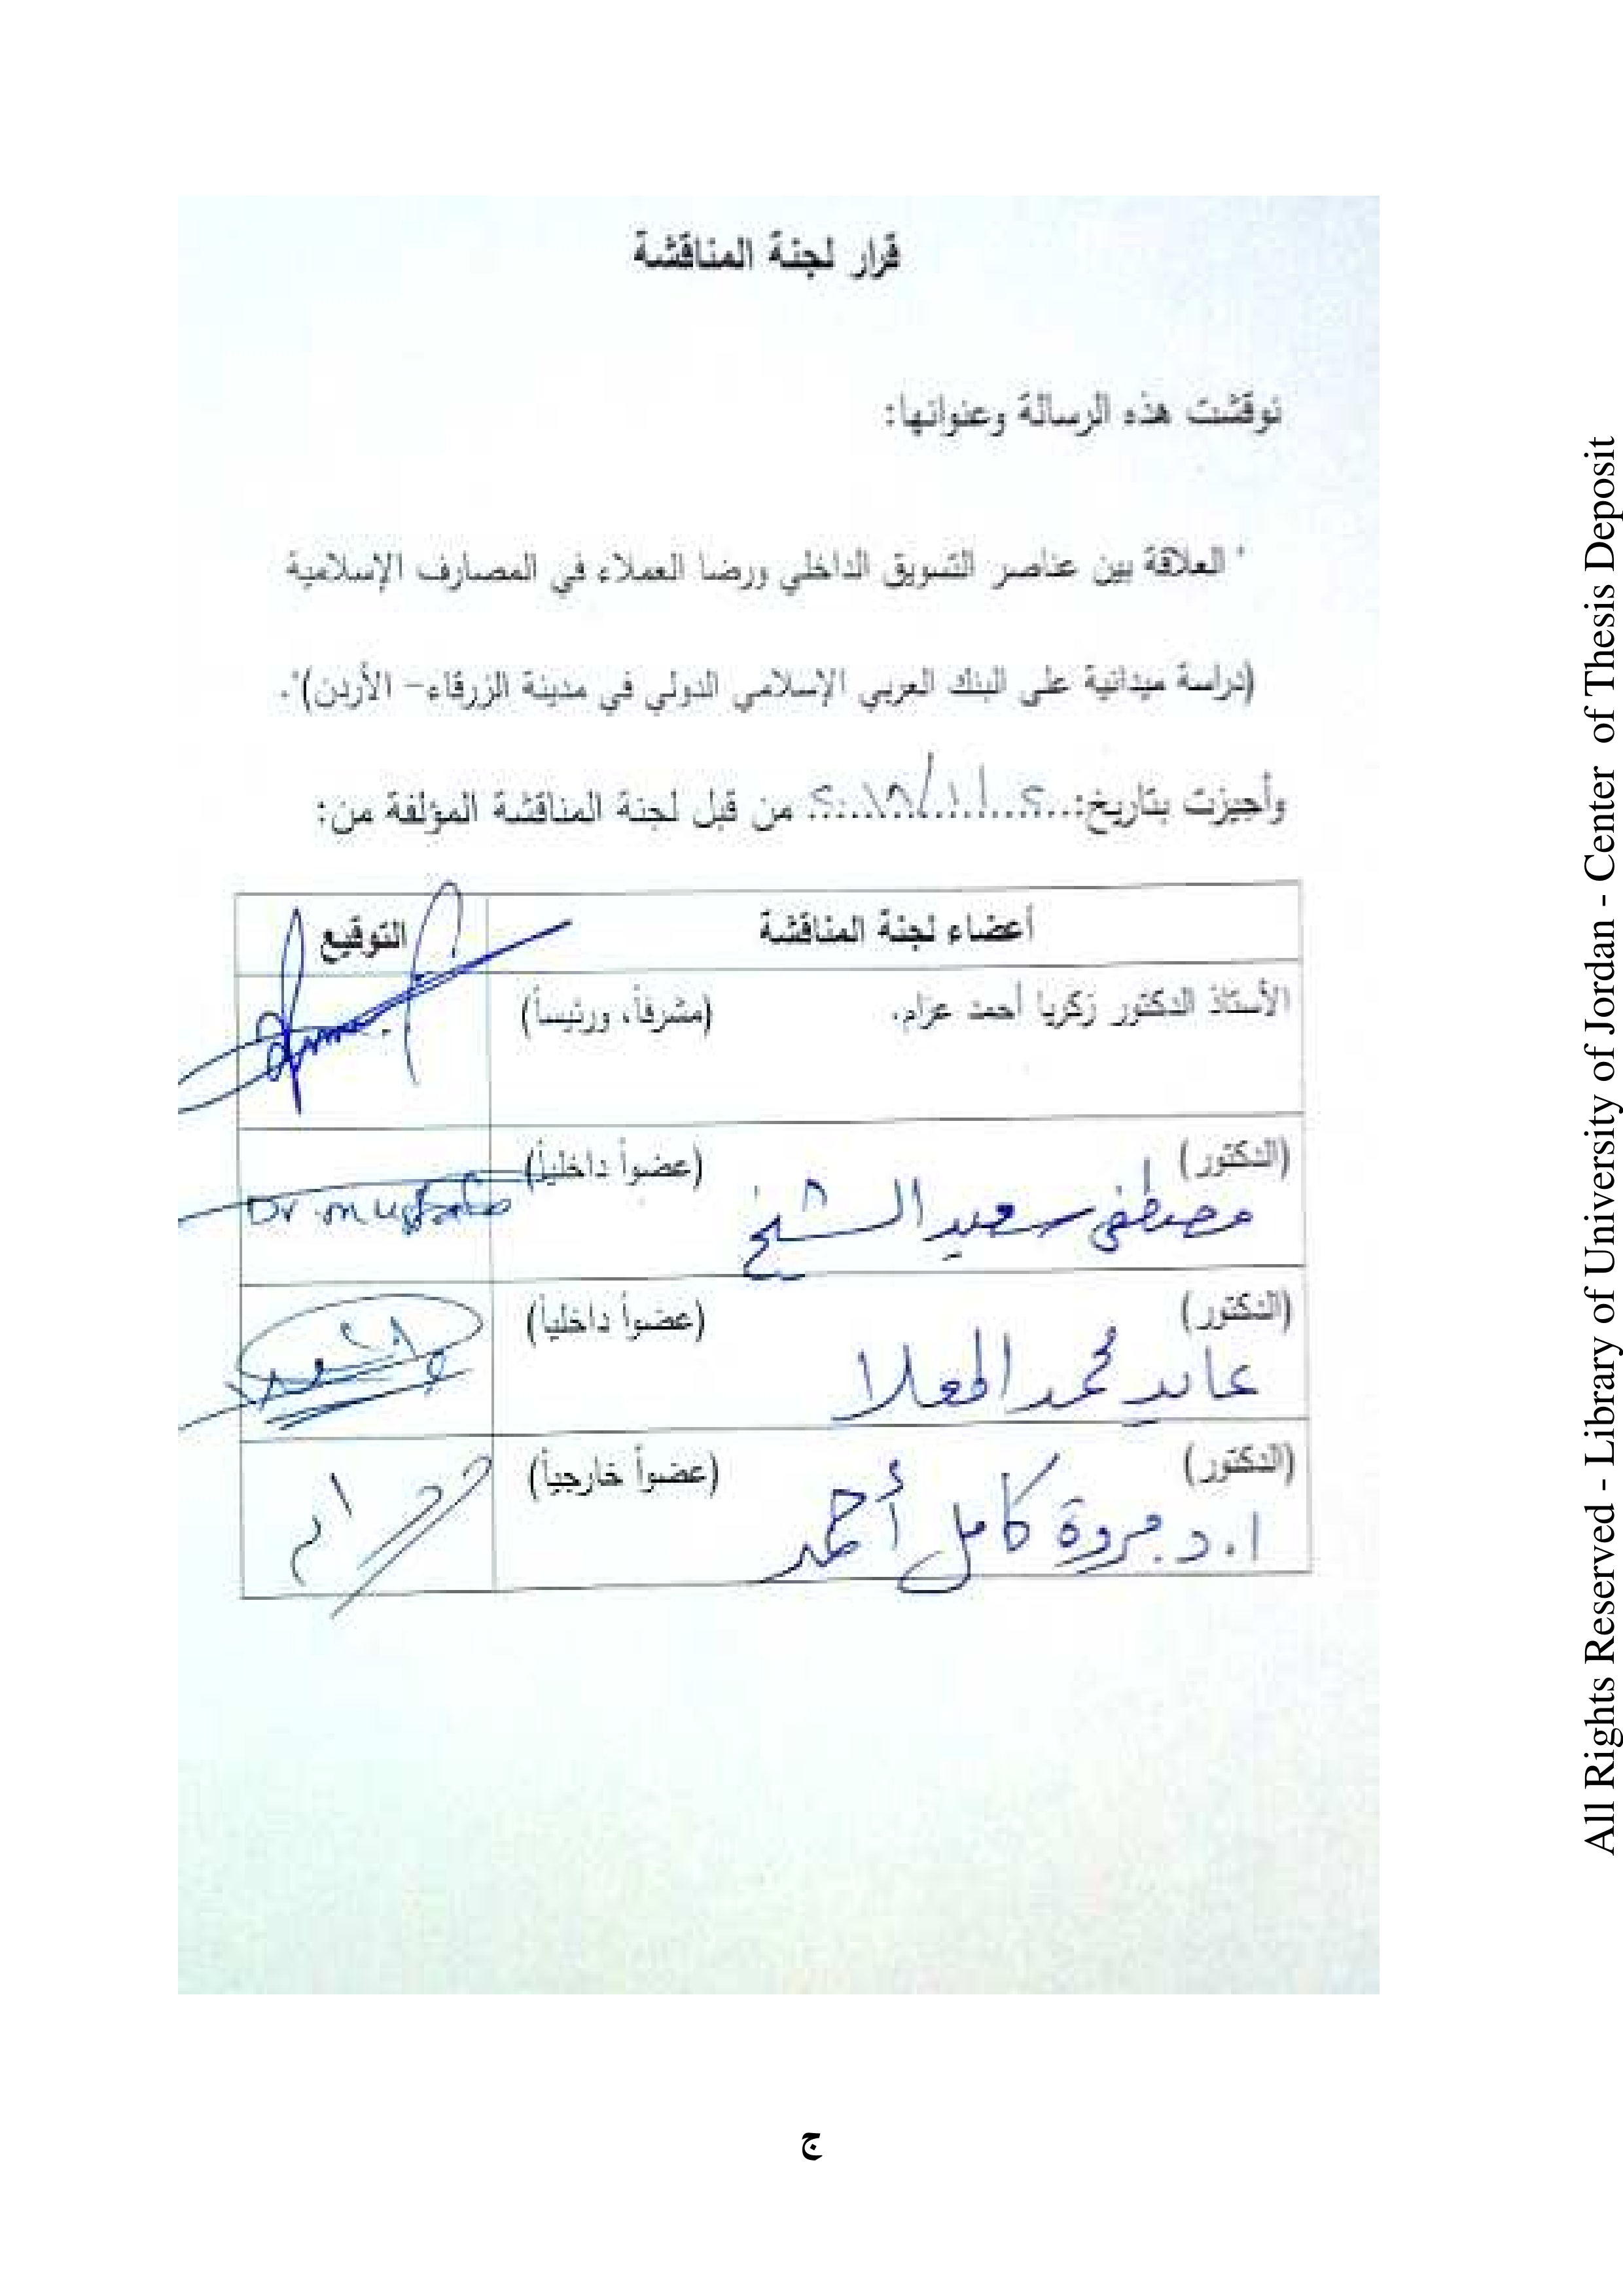 قرار لجنة المناقشة
نوقشت هذه الرسالة وعنوانها:
" العلاقة بين عناصر التسويق الداخلي ورضا العملاء في المصارف الإسلامية
(دراسة ميدانية على البنك العربي الإسلامي الدولي في مدينة الزرقاء– الأردن)".
وأجيزت بتاريخ: من قبل لجنة المناقشة المؤلفة من:
أعضاء لجنة المناقشة التوقيع
الأستاذ الدكتور زكريا أحمد عزام. (مشرفاً، ورئيساً)
(الدكتور) (عضواً داخلياً)
مصطفى سعيد الشيخ Dr.mustafa
(الدكتور) (عضواً داخلياً)
عايد محمد المعلا
(الدكتور) (عضواً خارجياً)
ا.د مروة كامل أحمد
ج
All Rights Reserved - Library of University of Jordan - Center of Thesis Deposit